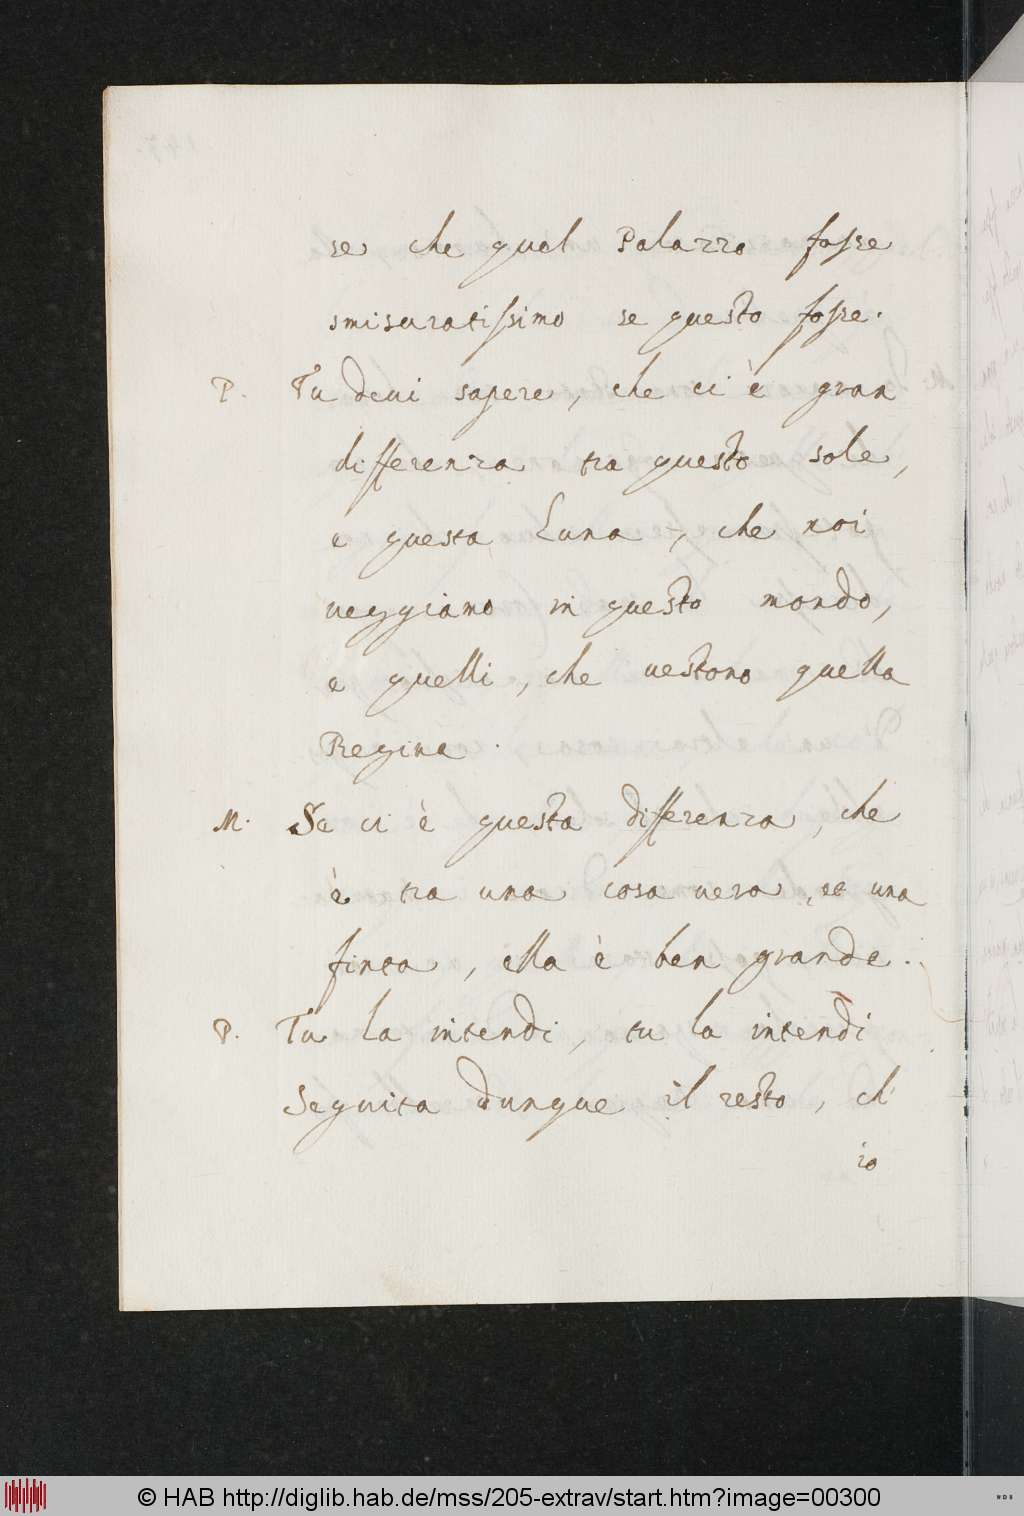 se che qual Palazzo fosse
smisuratissimo se questo fosse.
P. Tu deui sapere, che ci è gran
differenza tra questo sole,
e questa Luna, che noi
ueggiamo in questo mondo,
e quelli, che uestono quella
Regina.
M. Se ci è questa differenza, che
è tra una cosa uera, et una
finta, ella è ben grande.
P. Tu la intendi, tu la intendi
Seguita dunque il resto, ch'
io
© HAB http://diglib.hab.de/mss/205-extrav/start.htm?image=00300